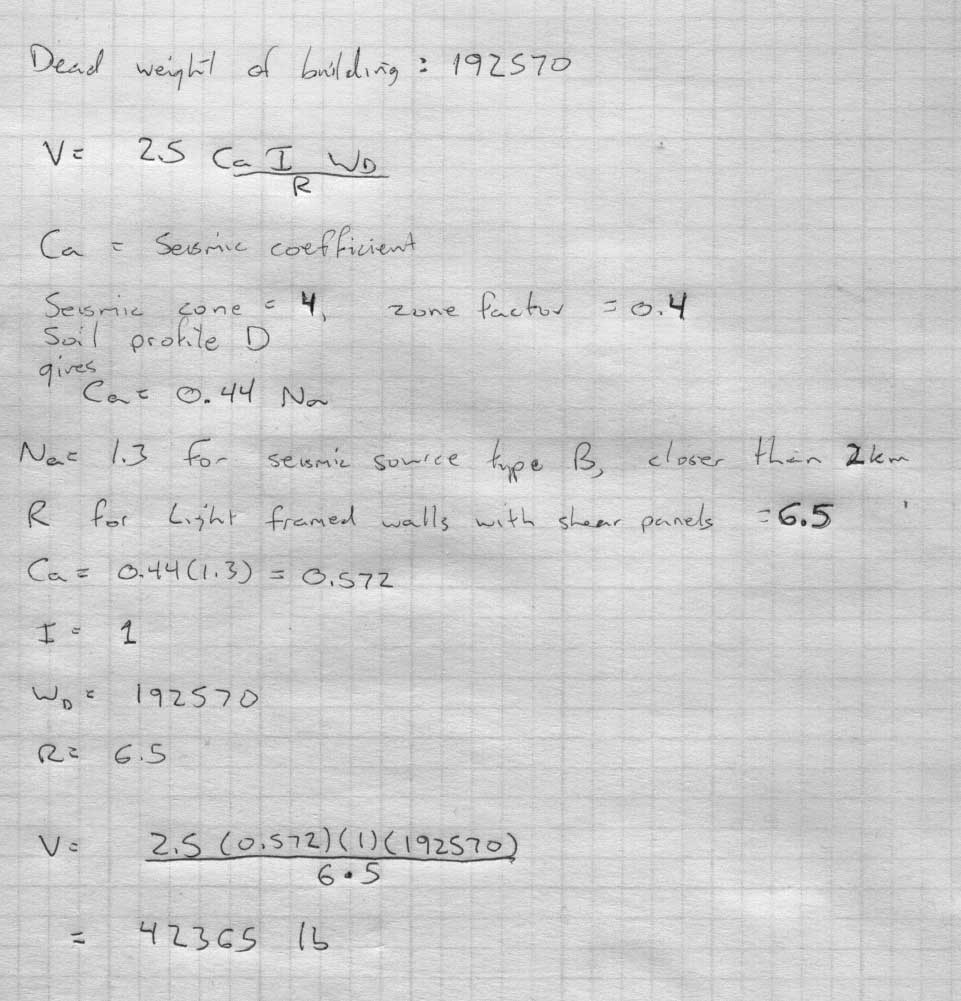 Dead weight of building : 192570
V = 2.5 Ca I WD
R
Ca = Seismic coefficient
Seismic zone = 4, zone factor = 0.4
Soil profile D
gives
Ca = 0.44 Na
Na = 1.3 for seismic source type B, closer than 2km
R for Light framed walls with shear panels = 6.5
Ca = 0.44(1.3) = 0.572
I = 1
WD = 192570
R = 6.5
V = 2.5 (0.572)(1)(192570)
6.5
= 42365 lb